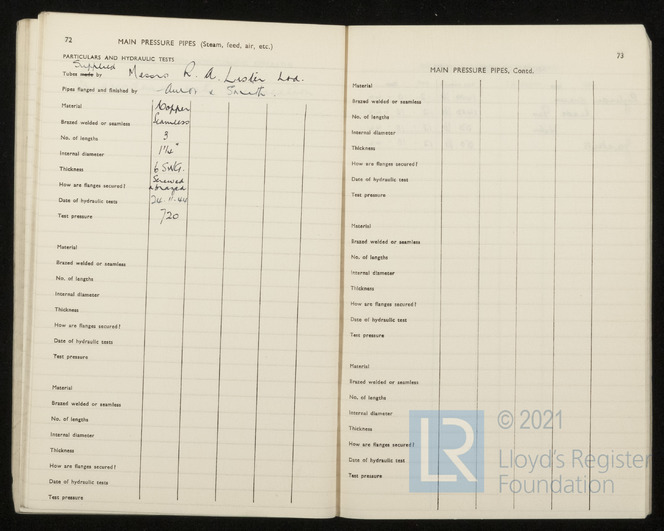 72
MAIN PRESSURE PIPES (Steam, feed, air, etc.)
PARTICULARS AND HYDRAULIC TESTS
Supplied
Tubes made by Messrs R. A. Lister Ltd.
Pipes flanged and finished by & Smith.
Material Copper
Brazed welded or seamless Seamless
No. of lengths 3
Internal diameter 1¼"
Thickness 6 SWG.
How are flanges secured? Screwed & brazed
Date of hydraulic tests 24.11.44
Test pressure 720
Material
Brazed welded or seamless
No. of lengths
Internal diameter
Thickness
How are flanges secured?
Date of hydraulic tests
Test pressure
Material
Brazed welded or seamless
No. of lengths
Internal diameter
Thickness
How are flanges secured?
Date of hydraulic tests
Test pressure
73
MAIN PRESSURE PIPES, Contd.
Material
Brazed welded or seamless
No. of lengths
Internal diameter
Thickness
How are flanges secured?
Date of hydraulic test
Test pressure
Material
Brazed welded or seamless
No. of lengths
Internal diameter
Thickness
How are flanges secured?
Date of hydraulic test
Test pressure
Material
Brazed welded or seamless
No. of lengths
Internal diameter
Thickness
How are flanges secured?
Date of hydraulic test
Test pressure
LR
© 2021
Lloyd's Register
Foundation